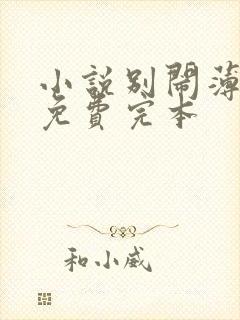 小說別鬧薄
免費完本
和小威